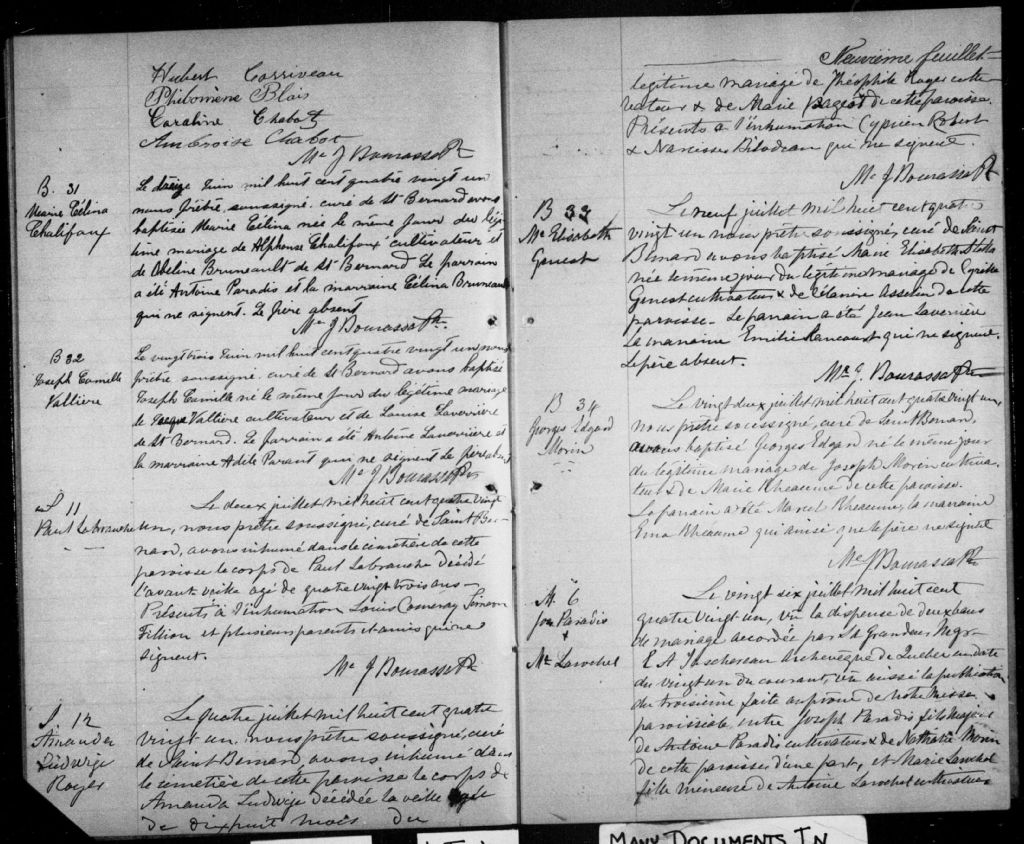 Hubert Corriveau
Philomène Blais
Caroline Chabot
Ambroise Chabot
Me J Bourassa Ptr
B. 31
Marie Célina
Chalifoux
Le treize Juin mil huit cent quatre vingt un
nous prêtre soussigné curé de St Bernard avons
baptisée Marie Célina née le même jour du légi
time mariage de Alphonse Chalifoux cultivateur et
de Odeline Bruneault de St Bernard Le parrain
a été Antoine Paradis et la marraine Célina Bruneau
qui ne signent. Le père absent
Me J Bourassa Ptr.
B 32
Joseph Camille
Vallière
Le vingt trois Juin mil huit cent quatre vingt un nous
prêtre soussigné curé de St Bernard avons baptisé
Joseph Camille né le même jour du légitime mariage
de Vallière cultivateur et de Louise Laverrière
de St Bernard. Le parrain a été Antoine Laverrière et
la marraine Adèle Parant qui ne signent le père absent
Me J Bourassa Ptr
S 11
Paul Labranche
Le deux juillet mil huit cent quatre vingt
un, nous prêtre soussigné, curé de Saint Ber-
nard, avons inhumé dans le cimetière de cette
paroisse le corps de Paul Labranche décédé
l'avant veille agé de quatre vingt trois ans-
Présents à l'inhumation Louis
Fillion et plusieurs parents et amis qui ne
signent.
Me J Bourassa Ptr
S. 12
Amanda
Ludwige
Royer
Le quatre juillet mil huit cent quatre
vingt un nous prêtre soussigné, curé
de Saint Bernard, avons inhumé dans
le cimetière de cette paroisse le corps de
Amanda Ludwige décédée la veille agée
de dixhuit mois du
Neuvième feuillet
légitime mariage de Théophile Royer culti-
vateur & de Marie pageot de cette paroisse.
Présents à l'inhumation Cyprien Robert
& Narcisse Bilodeau qui ne signent.
Me J Bourassa Ptr
B 33
Me Elisabeth
Genest
Le neuf juillet mil huit cent quatre
vingt un nous prêtre soussigné, curé de Saint
Bernard avons baptisé Marie Elisabeth
née le même jour du légitime mariage de
Genest cultivateur & de Asselin de cette
paroisse. Le parrain a été Jean Laverrière
la marraine Emilie Rancourt qui ne signent.
Le père absent.
Me J. Bourassa Ptr
B 34
Georges Edgard
Morin
Le vingt deux juillet mil huit cent quatre vingt un,
nous prêtre soussigné, curé de Saint Bernard,
avons baptisé Georges Edgard né le même jour
du légitime mariage de Joseph Morin cultiva-
teur & de Marie Rheaume de cette paroisse.
Le parrain a été Marcel Rheaume, la marraine
Ema Rhéaume qui ainsi que le père ne signent
Me J Bourassa Ptr
M. 6
Jos Paradis
&
Me Larochel
Le vingt six juillet mil huit cent
quatre vingt un, vu la dispense de deux bans
de mariage accordée par Sa Grandeur Mgr
E A Taschereau Archevêque de Quebec en date
du vingt un du courant, vu aussi la publication
du troisième faite au prône de notre messe
paroissiale entre Joseph Paradis fils majeur
de Antoine Paradis cultivateur & de Nathalie Morin
de cette paroisse d'une part, et Marie Larochel
fille mineure de Antoine Larochel cultivateur
MANY DOCUMENTS IN